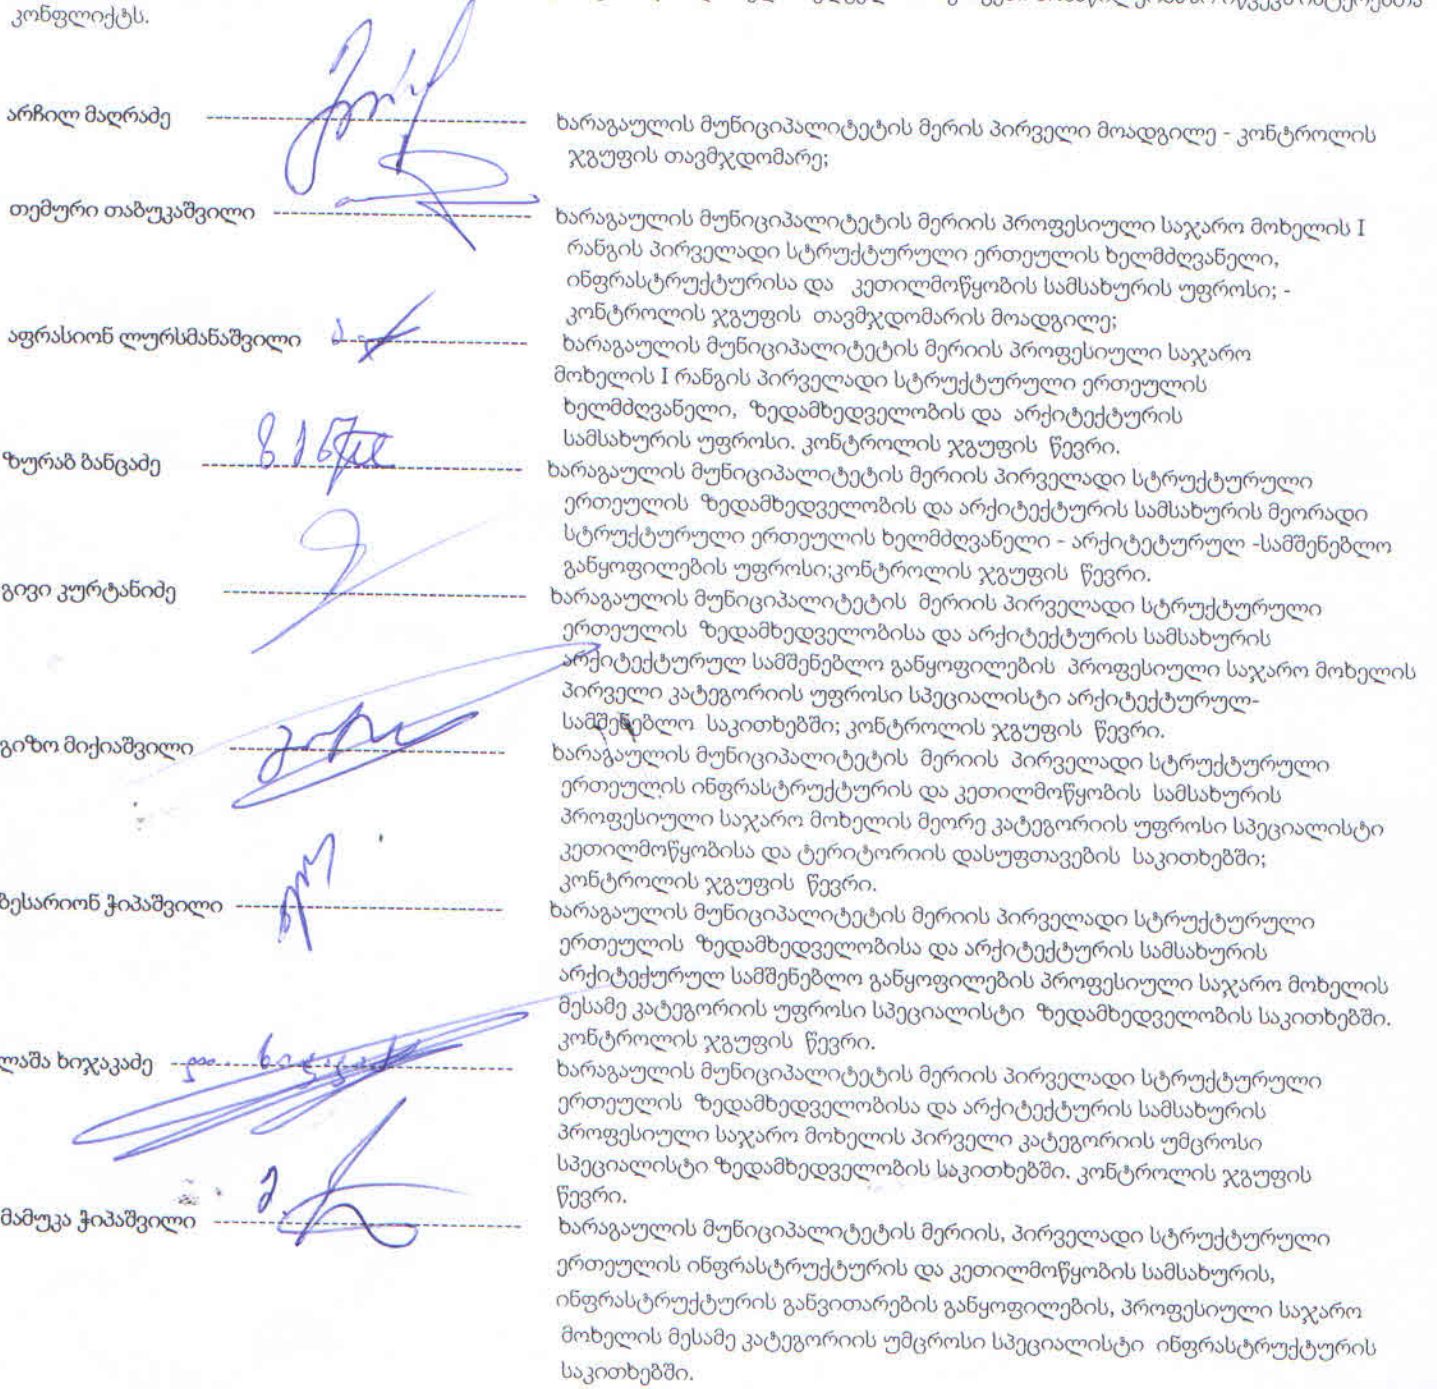 კონფლიქტს.
არჩილ მაღრაძე
ხარაგაულის მუნიციპალიტეტის მერის პირველი მოადგილე - კონტროლის
ჯგუფის თავმჯდომარე;
თემური თაბუკაშვილი
ხარაგაულის მუნიციპალიტეტის მერიის პროფესიული საჯარო მოხელის I
რანგის პირველადი სტრუქტურული ერთეულის ხელმძღვანელი,
ინფრასტრუქტურისა და კეთილმოწყობის სამსახურის უფროსი; -
კონტროლის ჯგუფის თავმჯდომარის მოადგილე;
აფრასიონ ლურსმანაშვილი
ხარაგაულის მუნიციპალიტეტის მერიის პროფესიული საჯარო
მოხელის I რანგის პირველადი სტრუქტურული ერთეულის
ხელმძღვანელი, ზედამხედველობის და არქიტექტურის
სამსახურის უფროსი. კონტროლის ჯგუფის წევრი.
ზურაბ ბანცაძე
ხარაგაულის მუნიციპალიტეტის მერიის პირველადი სტრუქტურული
ერთეულის ზედამხედველობის და არქიტექტურის სამსახურის მეორადი
სტრუქტურული ერთეულის ხელმძღვანელი - არქიტეტურულ -სამშენებლო
განყოფილების უფროსი;კონტროლის ჯგუფის წევრი.
გივი კურტანიძე
ხარაგაულის მუნიციპალიტეტის მერიის პირველადი სტრუქტურული
ერთეულის ზედამხედველობისა და არქიტექტურის სამსახურის
არქიტექტურულ სამშენებლო განყოფილების პროფესიული საჯარო მოხელის
პირველი კატეგორიის უფროსი სპეციალისტი არქიტექტურულ-
სამშენებლო საკითხებში; კონტროლის ჯგუფის წევრი.
გიზო მიქიაშვილი
ხარაგაულის მუნიციპალიტეტის მერიის პირველადი სტრუქტურული
ერთეულის ინფრასტრუქტურის და კეთილმოწყობის სამსახურის
პროფესიული საჯარო მოხელის მეორე კატეგორიის უფროსი სპეციალისტი
კეთილმოწყობისა და ტერიტორიის დასუფთავების საკითხებში;
კონტროლის ჯგუფის წევრი.
ბესარიონ ჭიპაშვილი
ხარაგაულის მუნიციპალიტეტის მერიის პირველადი სტრუქტურული
ერთეულის ზედამხედველობისა და არქიტექტურის სამსახურის
არქიტექურულ სამშენებლო განყოფილების პროფესიული საჯარო მოხელის
მესამე კატეგორიის უფროსი სპეციალისტი ზედამხედველობის საკითხებში.
კონტროლის ჯგუფის წევრი.
ლაშა ხიჯაკაძე
ხარაგაულის მუნიციპალიტეტის მერიის პირველადი სტრუქტურული
ერთეულის ზედამხედველობისა და არქიტექტურის სამსახურის
პროფესიული საჯარო მოხელის პირველი კატეგორიის უმცროსი
სპეციალისტი ზედამხედველობის საკითხებში. კონტროლის ჯგუფის
წევრი.
მამუკა ჭიპაშვილი
ხარაგაულის მუნიციპალიტეტის მერიის, პირველადი სტრუქტურული
ერთეულის ინფრასტრუქტურის და კეთილმოწყობის სამსახურის,
ინფრასტრუქტურის განვითარების განყოფილების, პროფესიული საჯარო
მოხელის მესამე კატეგორიის უმცროსი სპეციალისტი ინფრასტრუქტურის
საკითხებში.